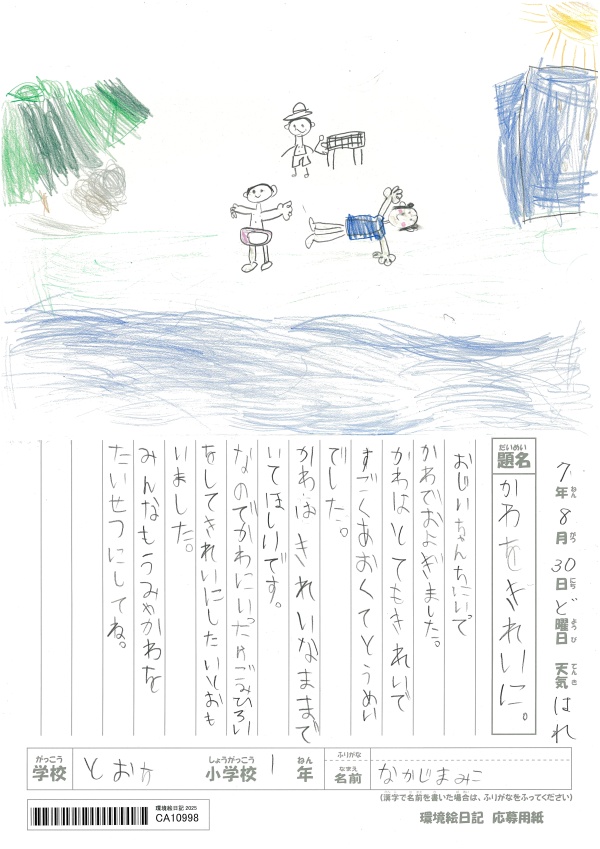 7年ねん8月がつ30日にちど曜日ようび 天気てんきはれ
題名だいめい かわをきれいに。
おじいちゃんちにいって
かわでおよぎました。
かわはとてもきれいで
すごくあおくてとうめい
でした。
かわはきれいなままで
いてほしいです。
なのでかわにいったけごみひろい
をしてきれいにしたいとおも
いました。
みんなもうみやかわを
たいせつにしてね。
学校がっこう とおか 小学校しょうがっこう 1 年ねん
ふりがな
名前なまえ なかじまみこ
(漢字で名前を書いた場合は、ふりがなをふってください)
環境絵日記 2025
CA10998
環境絵日記 応募用紙